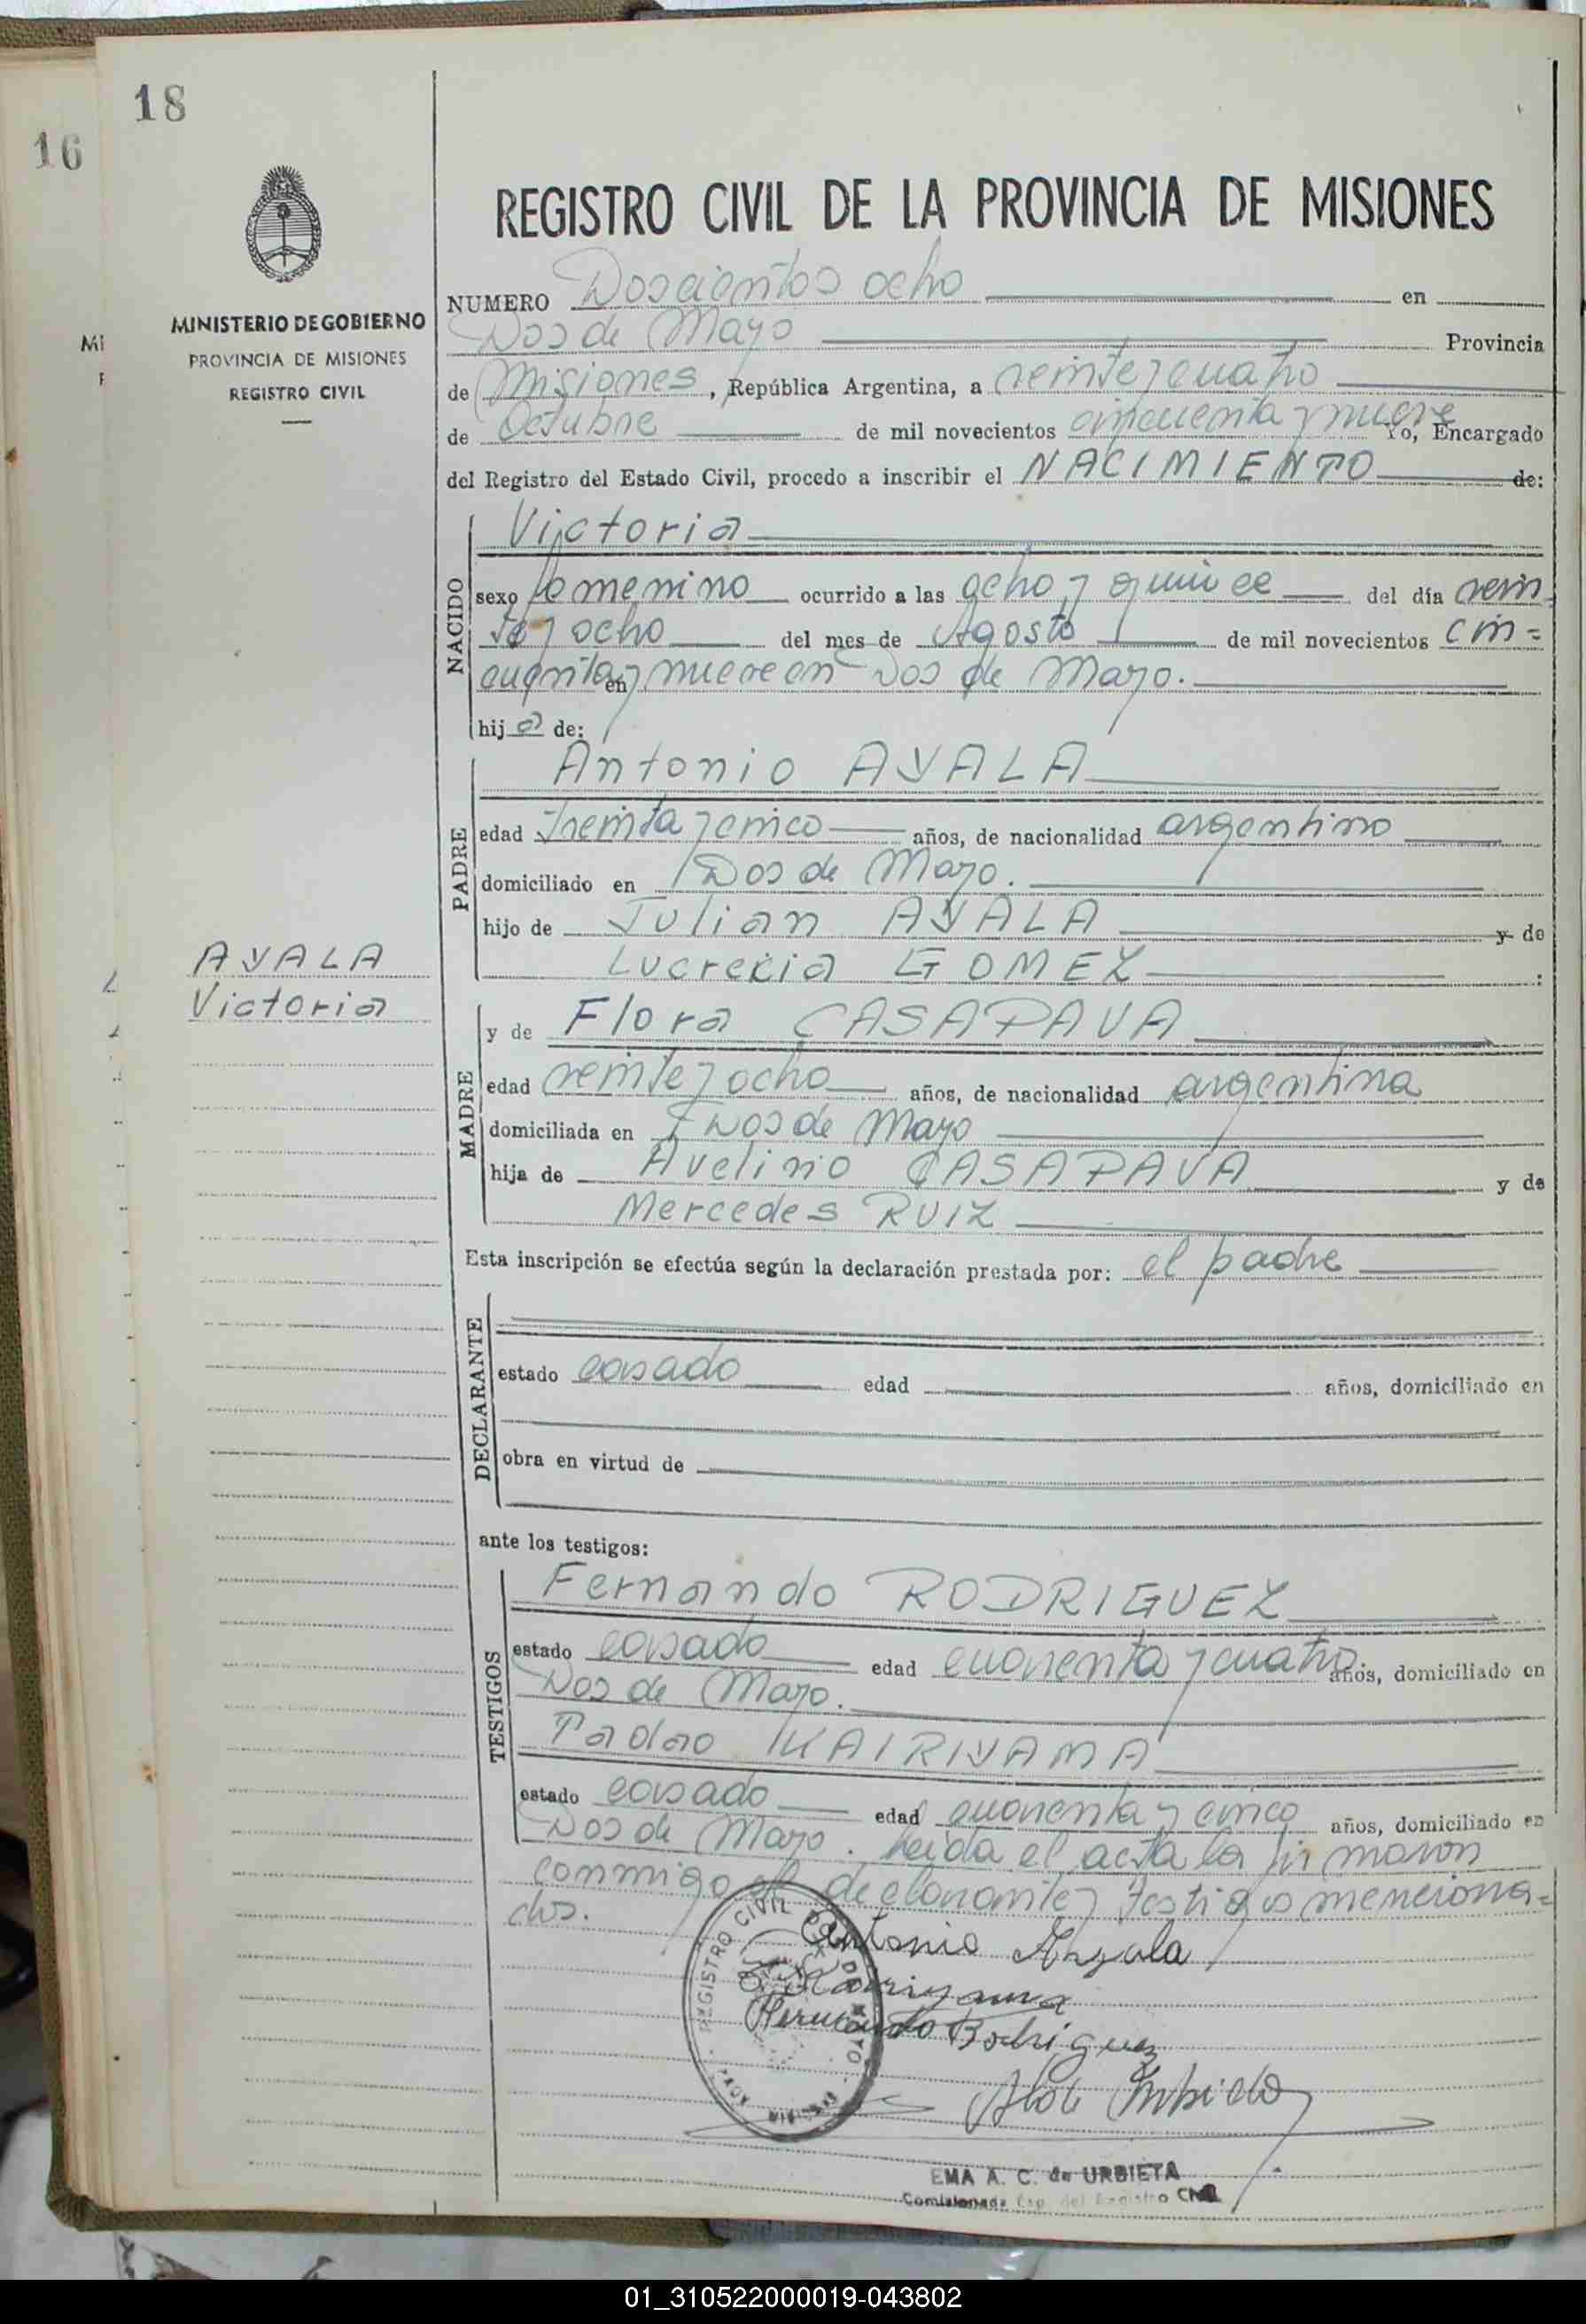 18
16
MINISTERIO DE GOBIERNO
PROVINCIA DE MISIONES
REGISTRO CIVIL
AYALA
Victoria
REGISTRO CIVIL DE LA PROVINCIA DE MISIONES
NUMERO Doscientos ocho en
Dos de Mayo Provincia
de Misiones, República Argentina, a veinte y cuatro
de Octubre de mil novecientos cincuenta y nueve Yo, Encargado
del Registro del Estado Civil, procedo a inscribir el NACIMIENTO de:
NACIDO
Victoria
sexo femenino ocurrido a las ocho y quince del día vein
te y ocho del mes de Agosto de mil novecientos cin=
cuenta y nueve en Dos de Mayo.
en
hija de:
PADRE
Antonio AYALA
edad treinta y cinco años, de nacionalidad argentino
domiciliado en Dos de Mayo.
hijo de Julian AYALA y de
Lucrecia GOMEZ
MADRE
y de Flora CASAPAVA
edad veinte y ocho años, de nacionalidad argentina
domiciliada en Dos de Mayo
hija de Avelino CASAPAVA y de
Mercedes RUIZ
Esta inscripción se efectúa según la declaración prestada por: el padre
DECLARANTE
estado casado edad años, domiciliado en
obra en virtud de
ante los testigos:
TESTIGOS
Fernando RODRIGUEZ
estado casado edad cuarenta y cuatro años, domiciliado en
Dos de Mayo.
Tadao KAIRIYAMA
estado casado edad cuarenta y cinco años, domiciliado en
Dos de Mayo. Leida el acta la firmaron
conmigo el declarante y testigos menciona=
dos.
Antonio Ayala
Kairiyama
Fernando Rodriguez
REGISTRO CIVIL DOS DE MAYO
EMA A. C. de URBIETA
Comisionada Esp. del Registro Civil
01_310522000019-043802